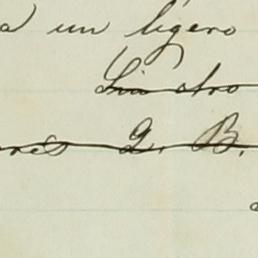 a un ligero
Sin otro
Q. B.